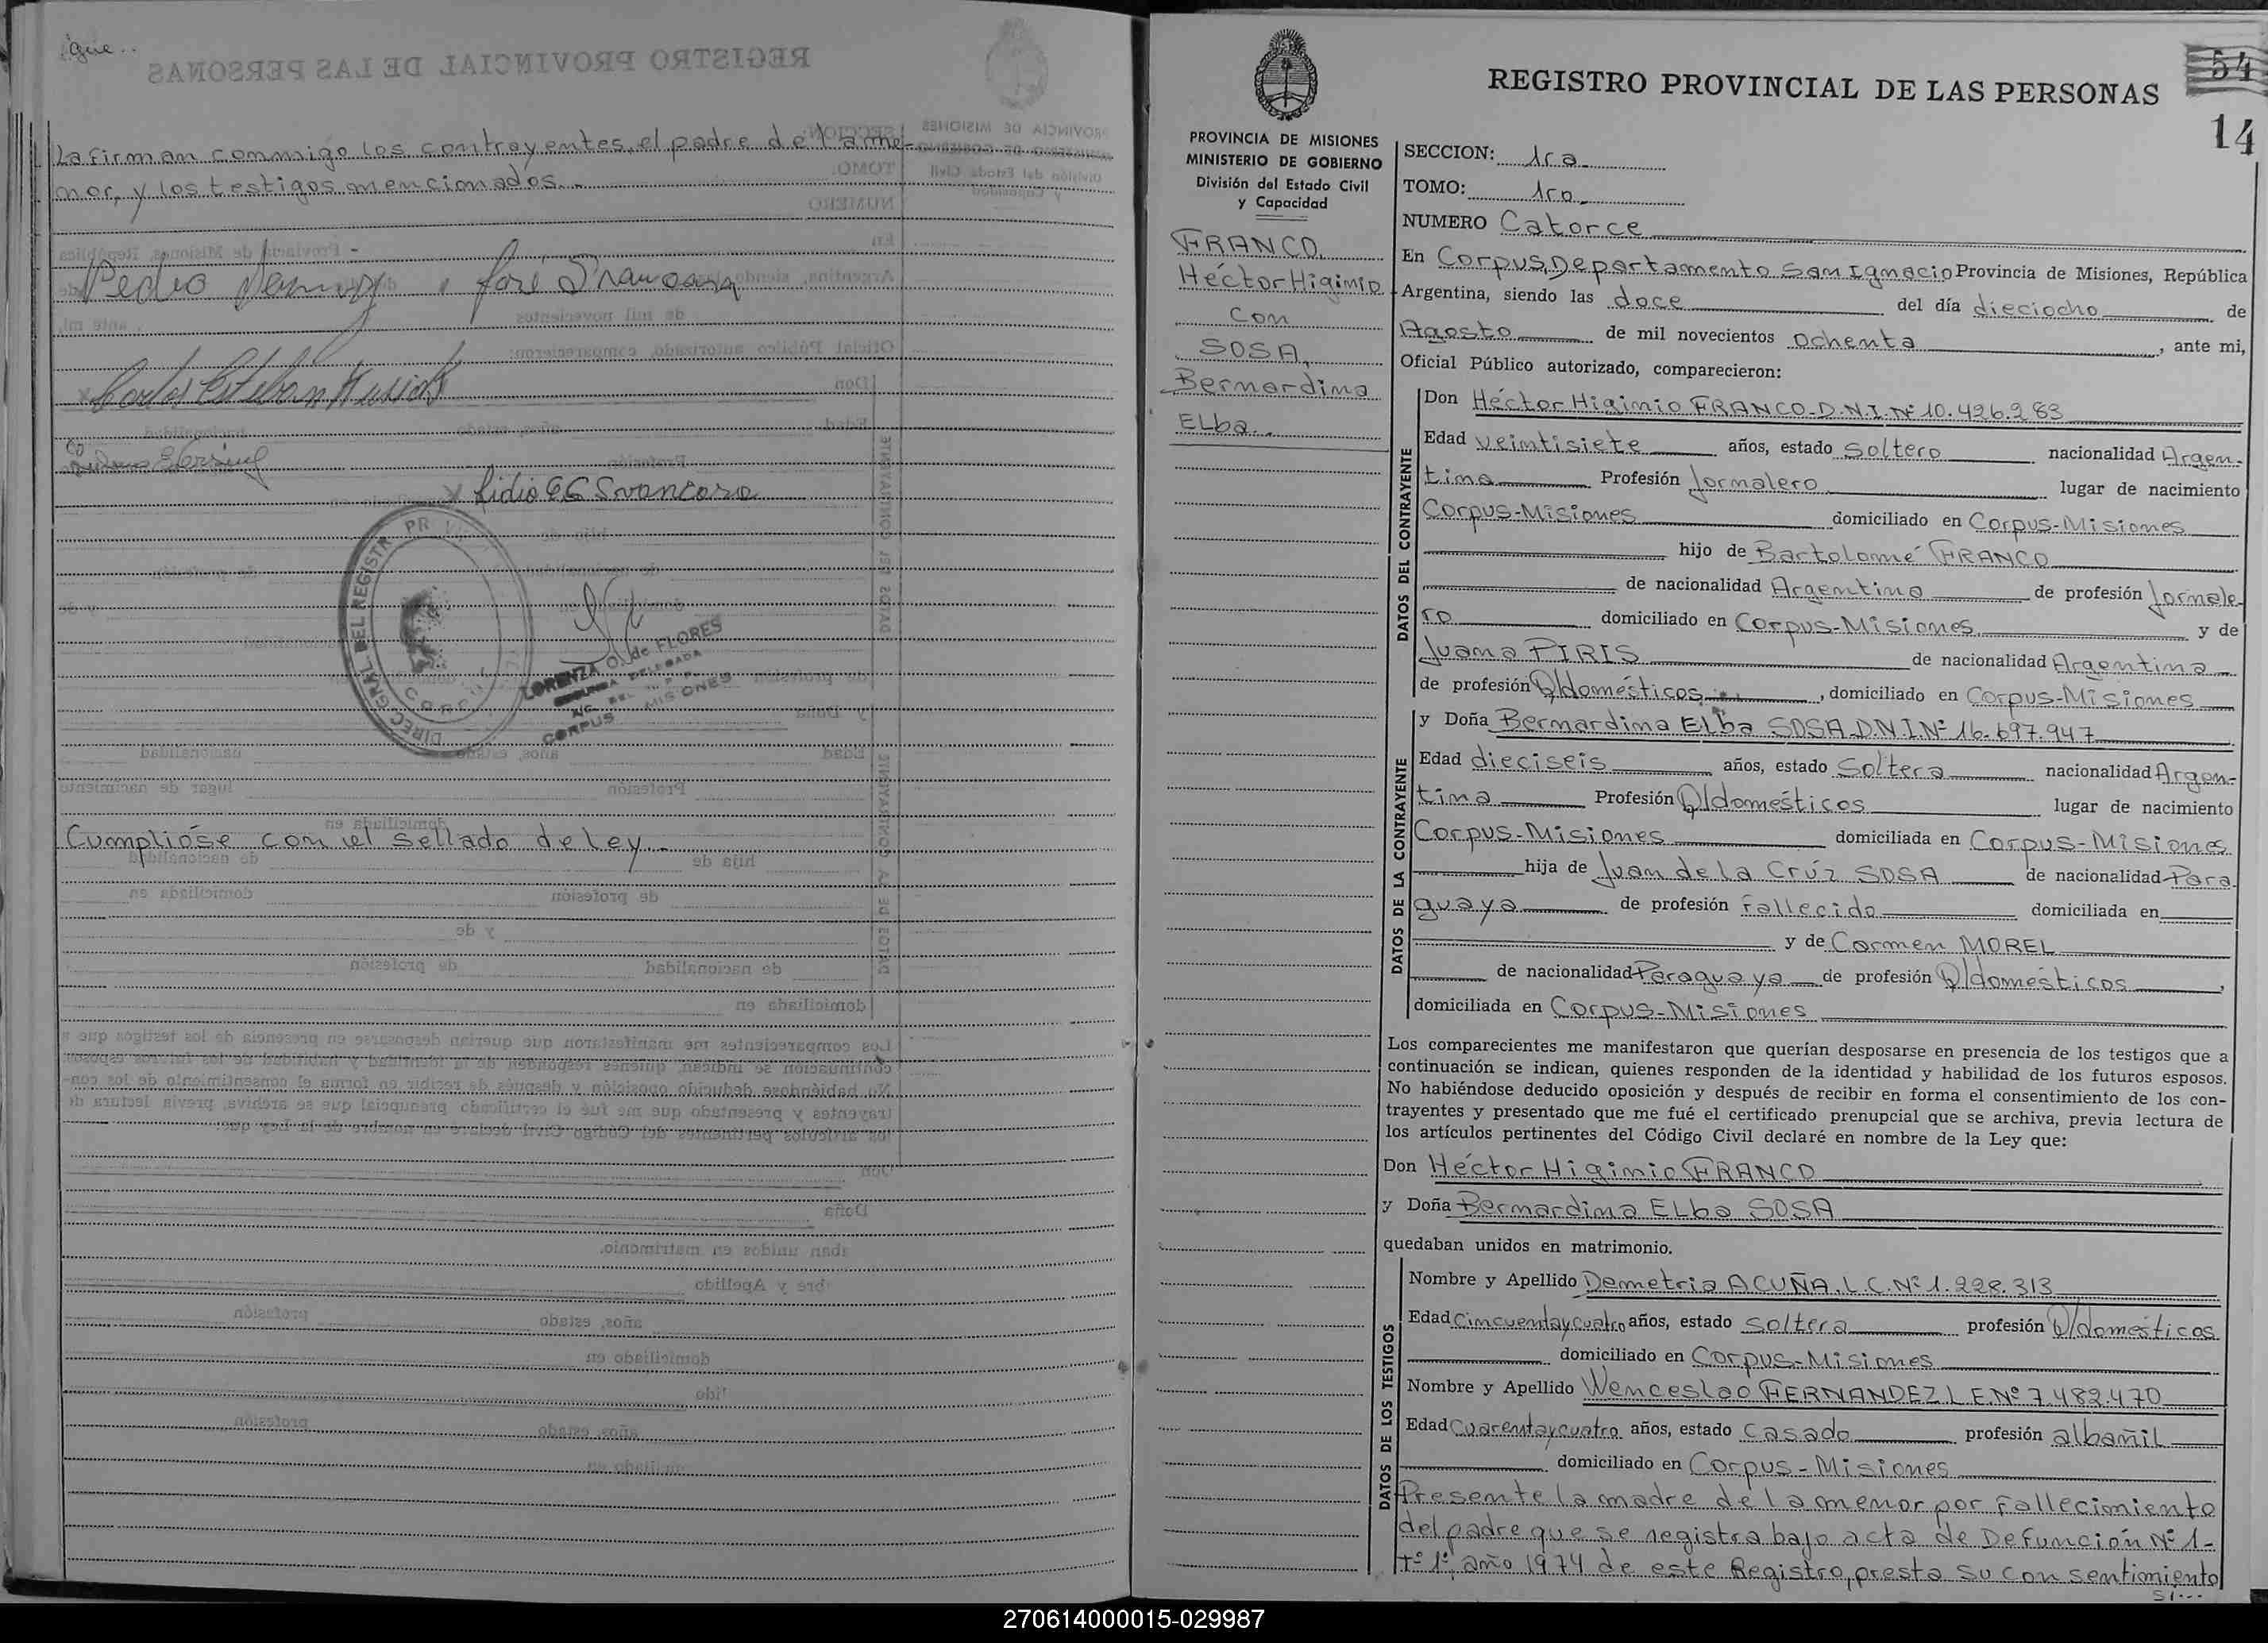 igue..
La firman conmigo los contrayentes, el padre de la me-
nor, y los testigos mencionados.-
Pedro
José
Carlos Esteban
Lidio
DIREC. GRAL. DEL REGISTR PR
CORPUS
LORENZA O. de FLORES
SEGUNDA DELEGADA
A/C. DEL R. P. P.
CORPUS MISIONES
Cumplióse con el sellado de ley.-
REGISTRO PROVINCIAL DE LAS PERSONAS
54
14
PROVINCIA DE MISIONES
MINISTERIO DE GOBIERNO
División del Estado Civil
y Capacidad
FRANCO,
Héctor Higinio
con
SOSA,
Bernardina
ELba.-
SECCION: 1ra
TOMO: 1ro
NUMERO Catorce
En Corpus, Departamento San Ignacio Provincia de Misiones, República
Argentina, siendo las doce del día dieciocho de
Agosto de mil novecientos ochenta, ante mi,
Oficial Público autorizado, comparecieron:
DATOS DEL CONTRAYENTE
Don Héctor Higinio FRANCO-D.N.I.Nº 10.426.283
Edad veintisiete años, estado Soltero nacionalidad Argen-
tina Profesión Jornalero lugar de nacimiento
Corpus-Misiones domiciliado en Corpus-Misiones
hijo de Bartolomé FRANCO
de nacionalidad Argentina de profesión Jornale-
ro domiciliado en Corpus-Misiones y de
Juana PIRIS de nacionalidad Argentina
de profesión Q/domésticos, domiciliado en Corpus-Misiones
DATOS DE LA CONTRAYENTE
y Doña Bernardina ELba SOSA-D.N.I.Nº 16.697.947
Edad dieciseis años, estado Soltera nacionalidad Argen-
tina Profesión Q/domésticos lugar de nacimiento
Corpus-Misiones domiciliada en Corpus-Misiones
hija de Juan de la Crúz SOSA de nacionalidad Para
guaya de profesión fallecido domiciliada en
y de Carmen MOREL
de nacionalidad Paraguaya de profesión Q/domésticos,
domiciliada en Corpus-Misiones
Los comparecientes me manifestaron que querían desposarse en presencia de los testigos que a
continuación se indican, quienes responden de la identidad y habilidad de los futuros esposos.
No habiéndose deducido oposición y después de recibir en forma el consentimiento de los con-
trayentes y presentado que me fué el certificado prenupcial que se archiva, previa lectura de
los artículos pertinentes del Código Civil declaré en nombre de la Ley que:
Don Héctor Higinio FRANCO
y Doña Bernardina ELba SOSA
quedaban unidos en matrimonio.
DATOS DE LOS TESTIGOS
Nombre y Apellido Demetria ACUÑA.L.C.Nº 1.228.313
Edad Cincuentaycuatro años, estado soltera profesión Q/domésticos
domiciliado en Corpus-Misiones
Nombre y Apellido Wenceslao FERNANDEZ L.E.Nº 7.482.470
Edad Cuarentaycuatro años, estado Casado profesión albañil
domiciliado en Corpus-Misiones
Presente la madre de la menor por fallecimiento
del padre que se registra bajo acta de Defunción Nº 1-
Tº 1º, año 1974 de este Registro, presta su consentimiento
si...
270614000015-029987